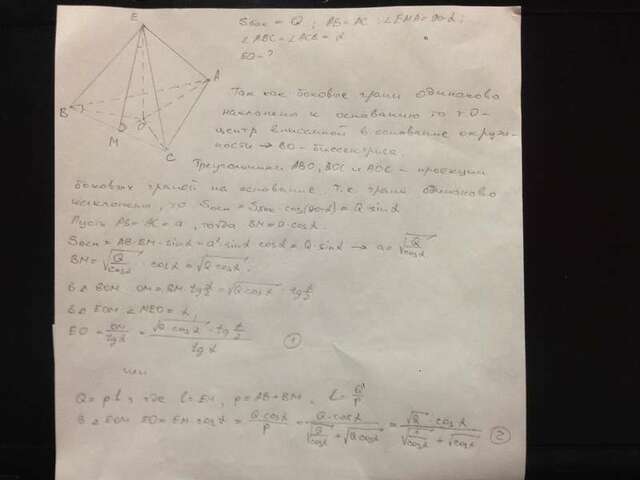 E
A
B
O
M
C
Sбок = Q ; AB = AC ; ∠EMA = 90-α ;
∠ABC = ∠ACB = α
EO - ?
Так как боковые грани одинаково
наклонены к основанию то т.О-
центр вписанной в основание окруж-
ности → BO - биссектриса.
Треугольники ABO, BOC и AOC - проекции
боковых граней на основание. Т.к грани одинаково
наклонены, то Sосн = Sбок · cos(90-α) = Q · sinα
Пусть AB = AC = a, тогда BM = a · cosα.
Sосн = AB · BM · sinα = a² · sinα cosα = Q · sinα → a = √(Q/cosα)
BM = √(Q/cosα) · cosα = √(Q·cosα) ;
В △ BOM OM = BM · tg α/2 = √(Q·cosα) · tg α/2
В △ EOM ∠MEO = α,
EO = OM/tgα = (√(Q·cosα) · tg α/2)/tgα ①
или
Q = pl, где l = EM, p = AB + BM, l = Q/p
В △ EOM EO = EM · cosα = (Q·cosα)/p = (Q·cosα)/(√(Q/cosα) + √(Q cosα)) = (√Q · cosα)/(√(1/cosα) + √cosα) ②